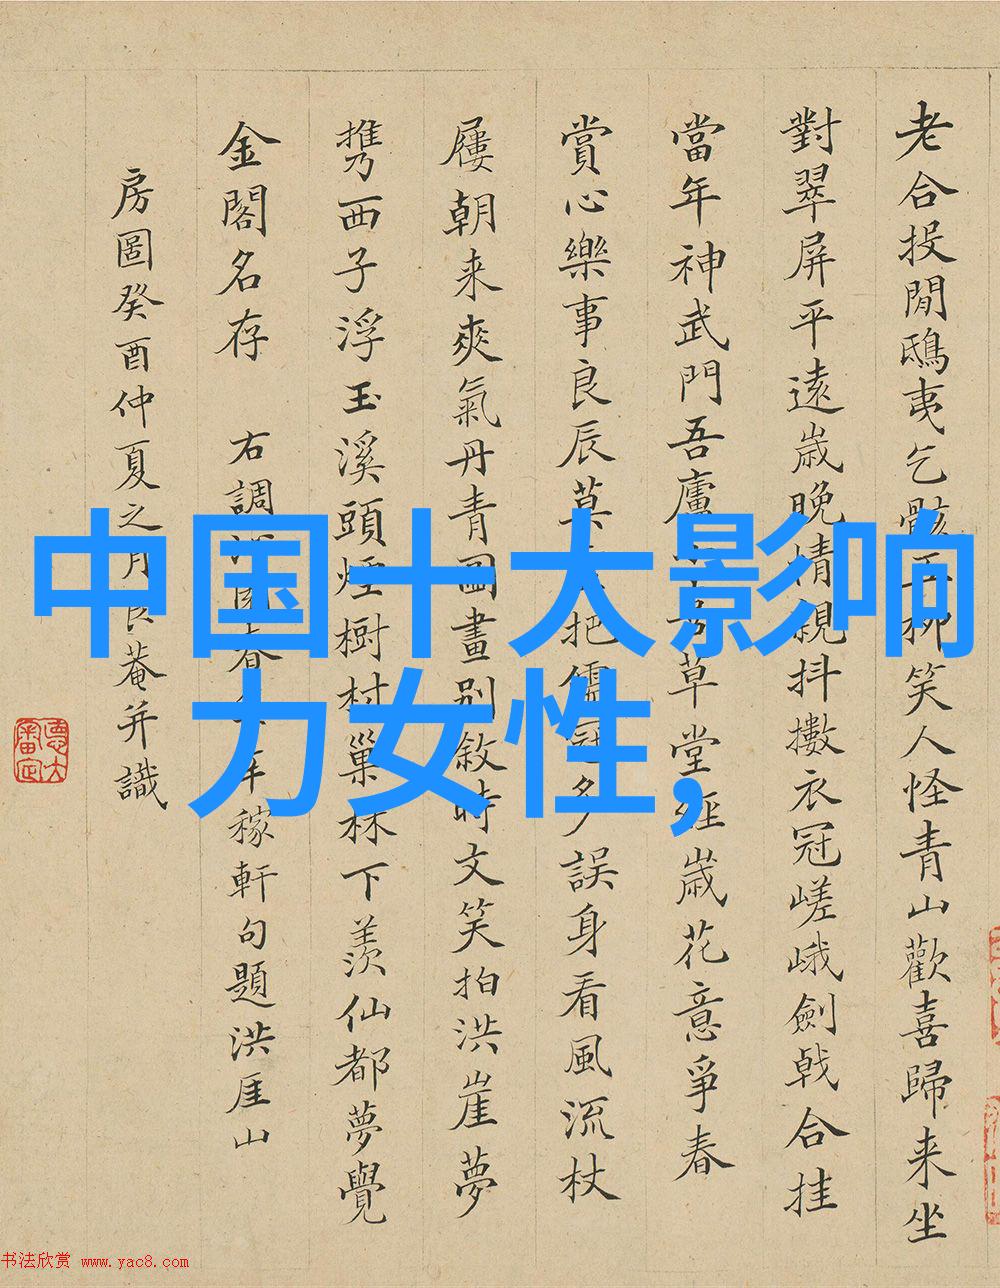 老合投閒鴟夷乞骸五柳笑人怪青山歡喜歸来坐
對翠屏平遠歲晚情親抖擻衣冠嵯峨劍戟合挂
當年神武門吾廬草堂經歲花意爭春
賞心樂事良辰莫把儒冠多誤身看風流杖
屨朝来爽氣丹青圖畫别敘時文笑拍洪崖夢
携西子浮玉溪頭煙樹村巢林下羨仙都夢覺
金閣名存 右調沁園春年稼軒句題洪厓山
房圖癸酉仲夏之月良菴并識
中国十大影响
力女性,
书法欣赏 www.yac8.com